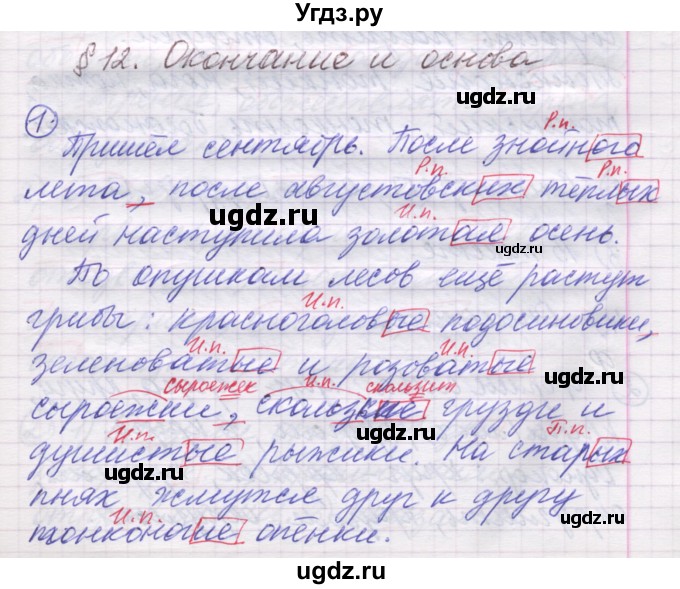 Угдз.ру
§12. Окончание и основа
ugdz.ru ugdz.ru
1.
Р.п.
Пришёл сентябрь. После знойного
ugdz.ru ugdz.ru
Р.п. Р.п.
лета, после августовских тёплых
ugdz.ru
И.п.
дней наступила золотая осень.
ugdz.ru
По опушкам лесов ещё растут
И.п.
грибы: красноголовые подосиновики,
ugdz.ru ugdz.ru
И.п. И.п.
зеленоватые и розоватые
ugdz.ru
сыроежек И.п. скользит
сыроежки, скользкие грузди и
ugdz.ru
И.п. П.п.
душистые рыжики. На старых
ugdz.ru
пнях жмутся друг к другу
ugdz.ru
И.п.
тонконогие опёнки.
ugdz.ru
ugdz.ru